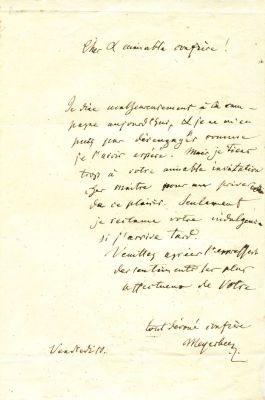 Cher & aimable confrère !
Je dîne malheureusement à la cam-
pagne aujourd'hui, & je ne m'en
puis pas désengager comme
je l'avais espéré. Mais je tiens
trop à votre aimable invitation
cher maître pour me priver
de ce plaisir. Seulement
je réclame votre indulgence
si j'arrive tard.
Veuillez agréer l'
des sentiments les plus
affectueux de Votre
tout dévoué confrère
Meyerbeer
Vendredi 10.